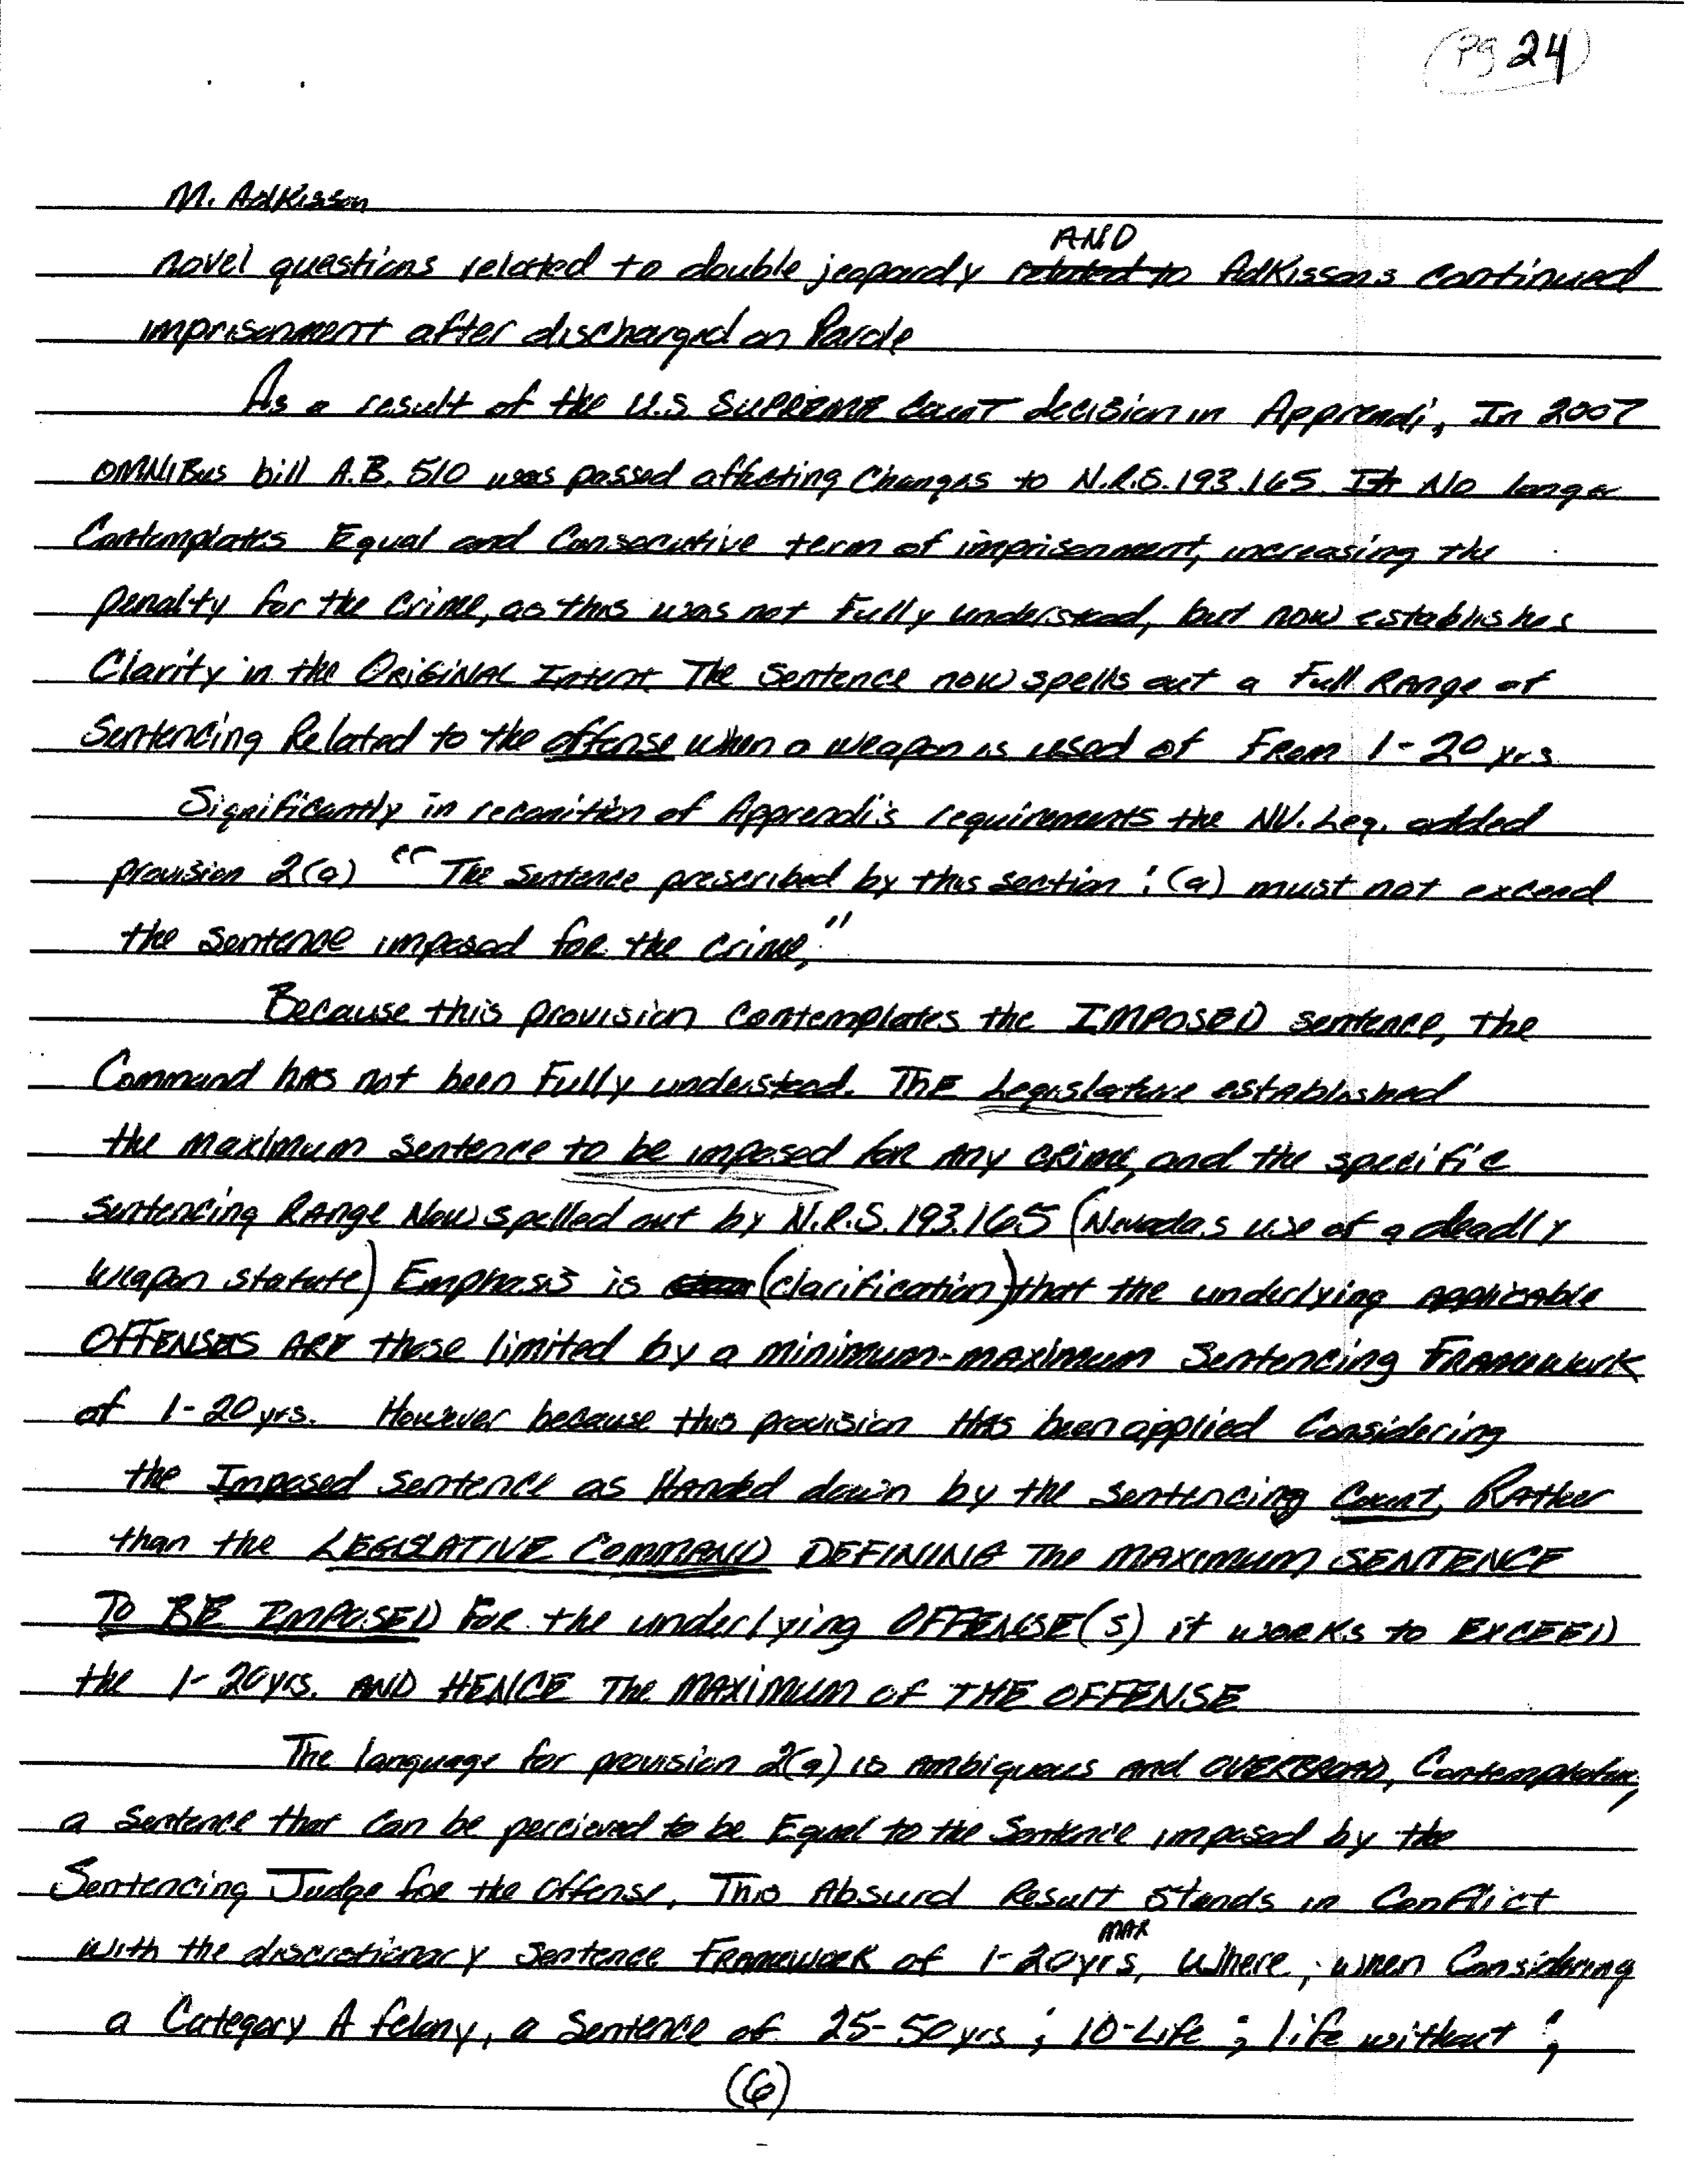 Pg 24
M. Adkisson
novel questions related to double jeopardy related to AND Adkissons continued
imprisonment after discharged on Parole
As a result of the U.S. SUPREME Court decision in Apprendi, In 2007
OMNIBus bill A.B. 510 was passed affecting Changes to N.R.S. 193.165. It No longer
Contemplates Equal and Consecutive term of imprisonment, increasing the
penalty for the crime, as this was not Fully understood, but now establishes
Clarity in the ORIGINAL Intent. The Sentence now spells out a Full RANge of
Sentencing Related to the offense when a weapon is used of From 1-20 yrs
Significantly in reconition of Apprendi's requirements the NV. Leg. added
provision 2(a) "The Sentence prescribed by this section: (a) must not exceed
the Sentence imposed for the crime,"
Because this provision Contemplates the IMPOSED sentence, the
Command hAs not been Fully understood. THE Legislature estAblished
the maximum sentence to be imposed for ANy crime, and the specific
Sentencing RANge Now spelled out by N.R.S. 193.165 (Nevada,s use of a deadly
weapon statute) Emphasis is (clarification) that the underlying applicable
OFFENSES ARE those limited by a minimum-maximum Sentencing FRAMEwork
of 1-20 yrs. However because this provision HAS been applied Considering
the Imposed Sentence as HANded down by the sentencing Court, RAther
than the LEGISLATIVE COMMAND DEFINING The MAXIMUM SENTENCE
TO BE IMPOSED FOR the underlying OFFENSE(S) it works to EXCEED
the 1-20yrs. AND HENCE The MAXIMUM OF THE OFFENSE
The language for provision 2(a) is AMbiguous AND OVERBROAD, Contemplating
a Sentence that can be percieved to be Equal to the Sentence imposed by the
Sentencing Judge for the Offense. This Absurd Result Stands in Conflict
with the discretionary Sentence FRAMEWORK of 1-20yrs MAX, Where, when Considering
a Category A felony, a Sentence of 25-50yrs ; 10-Life ; life without ;
(6)